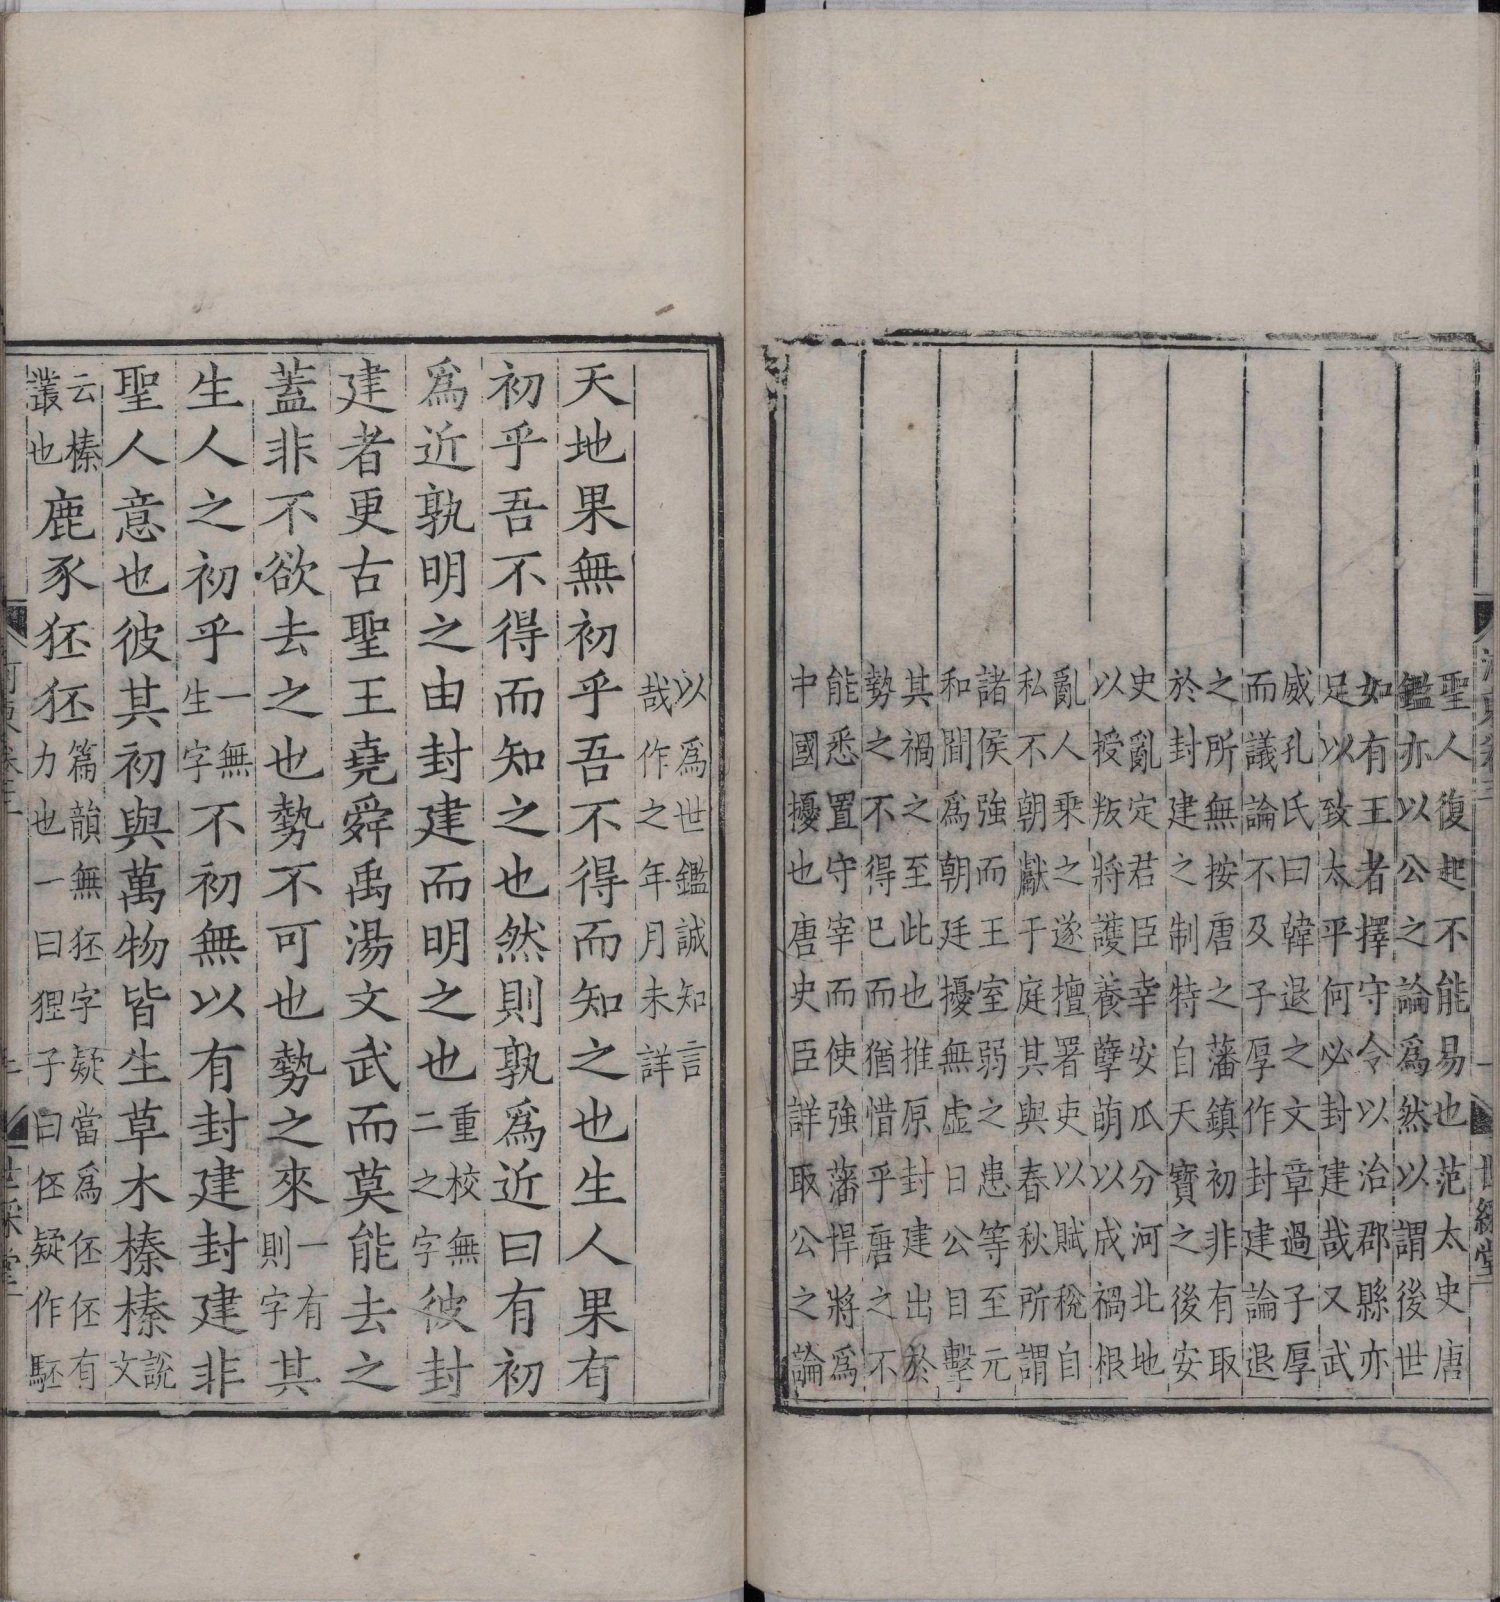 河東卷三
一
世綵堂
聖人復起不能易也范太史唐
鑑亦以公之論爲然以謂後世
如有王者擇守令以治郡縣亦
足以致太平何必封建哉又武
威孔氏曰韓退之文章過子厚
而議論不及子厚作封建論退
之所無按唐之藩鎮初非有取
於封建之制特自天寶之後安
史亂定君臣幸安瓜分河北地
以授叛將護養孽萌以成禍根
亂人乘之遂擅署吏以賦稅自
私不朝獻于庭其與春秋所謂
諸侯強而王室弱之患等至元
和間爲朝廷擾無虛日公目擊
其禍之至此也推原封建出於
勢之不得已而猶惜乎唐之不
能悉置守宰而使強藩悍將爲
中國擾也唐史臣詳取公之論
以爲世鑑誠知言
哉作之年月未詳
天地果無初乎吾不得而知之也生人果有
初乎吾不得而知之也然則孰爲近曰有初
爲近孰明之由封建而明之也重校無二之字彼封
建者更古聖王堯舜禹湯文武而莫能去之
蓋非不欲去之也勢不可也勢之來一有則字其
生人之初乎一無生字不初無以有封建封建非
聖人意也彼其初與萬物皆生草木榛榛說文
云榛叢也鹿豕狉狉篇韻無狉字疑當爲伾伾有力也一曰狸子曰伾疑作駓